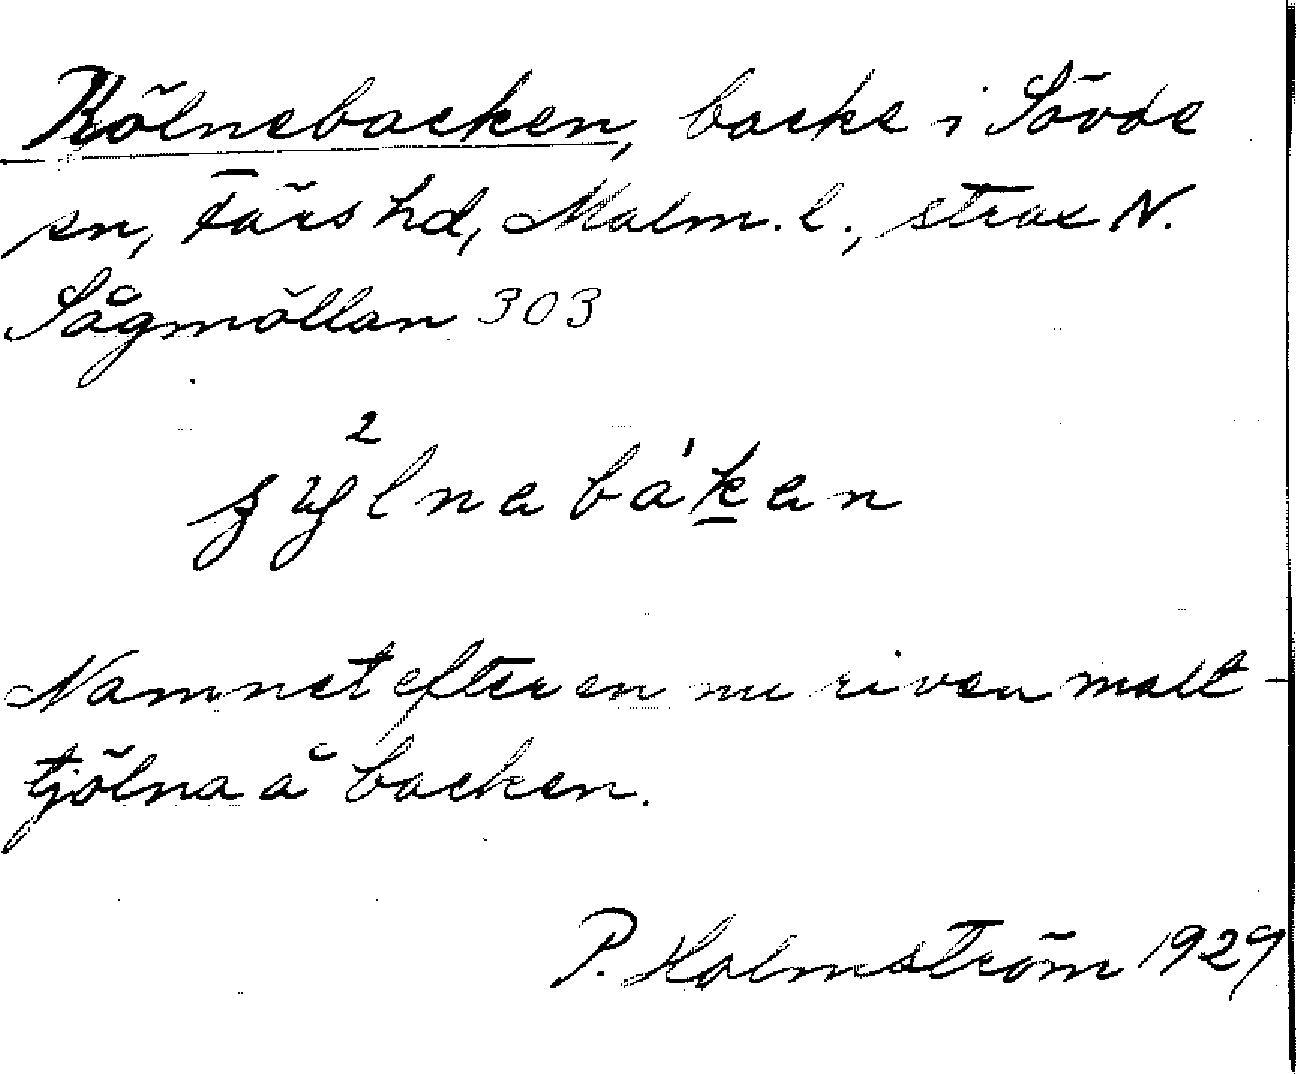 Kölnebacken, backe i Sövde
sn, Färs hd, Malm. l., strax N.
Sågmöllan 303
Namnet efter en nu riven malt-
tjölna å backen.
P. Holmström 1929